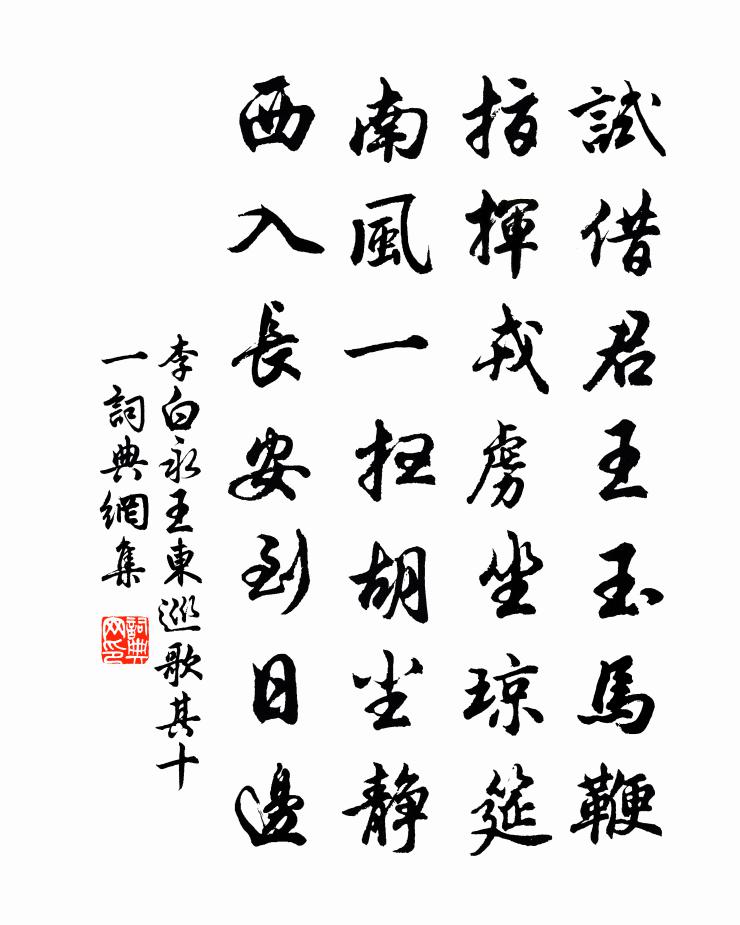 試借君王玉馬鞭
指揮戎虜坐瓊筵
南風一扫胡尘靜
西入長安到日邊
李白永王東巡歌其十
一詞典網集
詞典网印